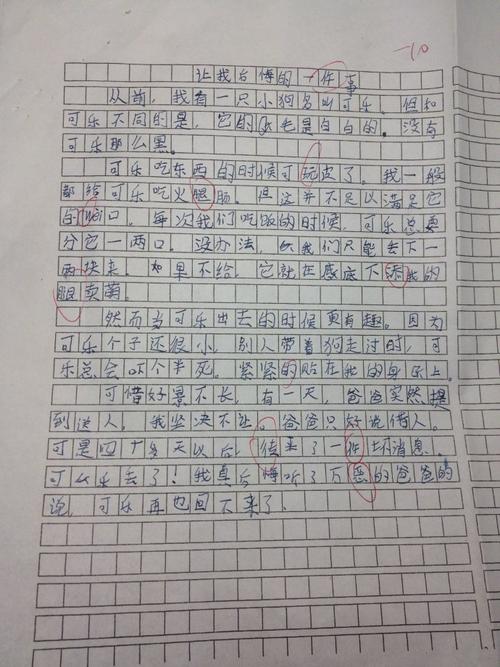 -10
让我后悔的一件事
从前，我有一只小狗名叫可乐。但和
可乐不同的是，它的皮毛是白白的。没有
可乐那么黑。
可乐吃东西的时候可玩皮了。我一般
都给可乐吃火腿肠。但这并不足以满足它
的胃口。每次我们吃饭的时候，可乐总要
分它一两口。没办法，我们只能丢下一
两块来。如果不给，它就在底下舔我的
腿卖萌。
然而当可乐出去的时候更有趣。因为
可乐个子还很小，别人带着狗走过时，可
乐总会吓个半死。紧紧的贴在我的身上。
可惜好景不长，有一天，爸爸突然提
到送人，我坚决不让。爸爸只好说借人。
可是四十多天以后，传来了一件坏消息。
可乐丢了！我真后悔听了万恶的爸爸的
说，可乐再也回不来了。